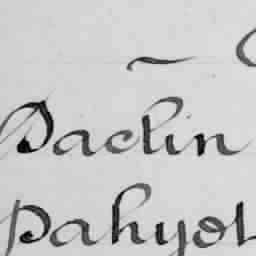 Daclin
pahyot